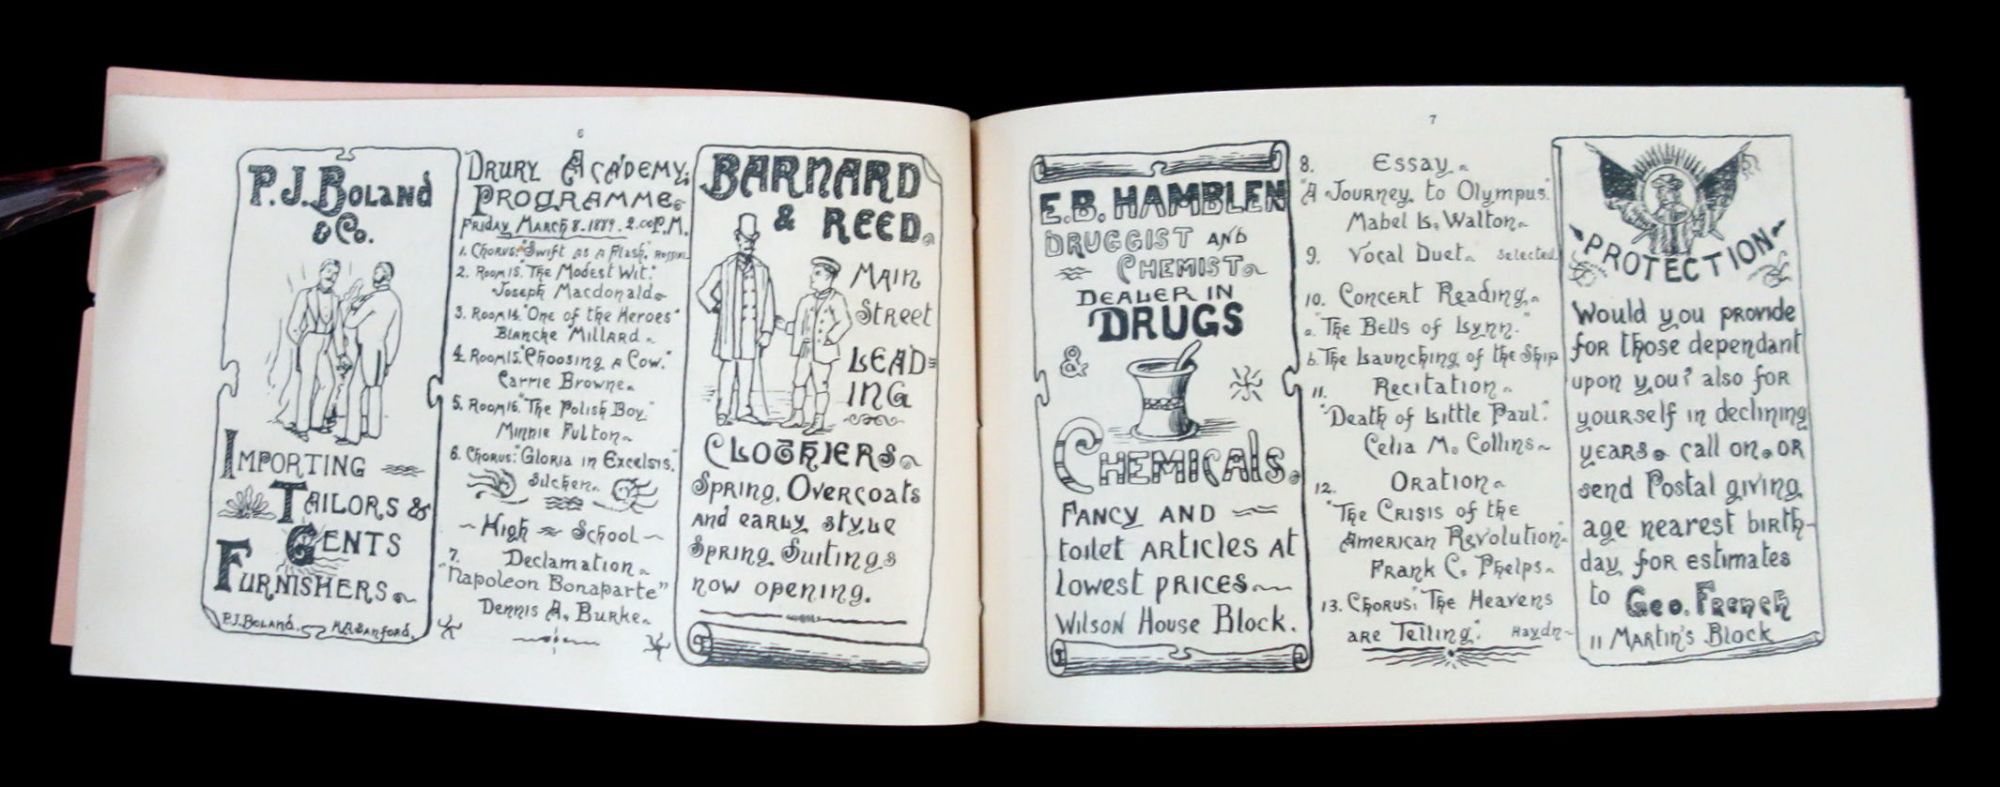 6
P.J. Boland
& Co.
Importing
Tailors &
Gents
Furnishers.
P.J. Boland. H.A. Sanford.
Drury Academy.
Programme.
Friday, March 8. 1889. 2.00 P.M.
1. Chorus: "Swift as a Flash," Rossini
2. Room 13. "The Modest Wit."
Joseph Macdonald.
3. Room 14. "One of the Heroes"
Blanche Millard.
4. Room 15. "Choosing a Cow."
Carrie Browne.
5. Room 16. "The Polish Boy."
Minnie Fulton.
6. Chorus: "Gloria in Excelsis,"
Silcher.
High School
7. Declamation.
"Napoleon Bonaparte"
Dennis A. Burke.
Barnard
& Reed.
Main
Street
Lead=
ing
Clothiers.
Spring, Overcoats
and early style
Spring Suitings
now opening.
7
E.B. Hamblen
Druggist and
Chemist.
Dealer in
Drugs
&
Chemicals.
Fancy and
toilet articles at
lowest prices
Wilson House Block.
8. Essay.
"A Journey to Olympus."
Mabel L. Walton.
9. Vocal Duet. Selected
10. Concert Reading.
a. "The Bells of Lynn."
b. The Launching of the Ship
11. Recitation.
"Death of Little Paul."
Celia M. Collins.
12. Oration.
"The Crisis of the
American Revolution"
Frank C. Phelps.
13. Chorus: "The Heavens
are Telling." Haydn
Protection
Would you provide
for those dependant
upon you? also for
yourself in declining
years. call on. or
send Postal giving
age nearest birth-
day for estimates
to Geo. French
11 Martin's Block